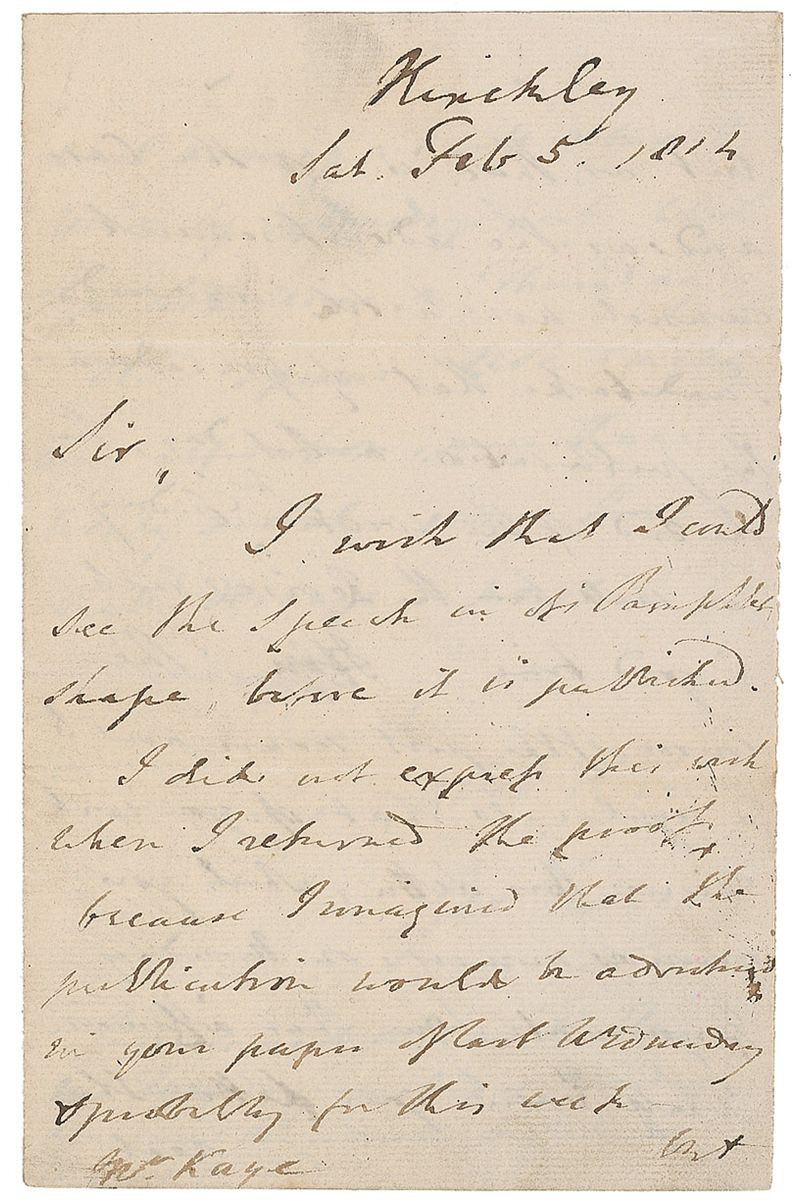 Hinckley
Sat. Feb 5. 1814
Sir,,
I wish that I could
see the Speech in its Pamphlet
shape, before it is published.
I did not express this wish
when I returned the proof,
because I imagined that the
publication would be advertised
in your paper of last Wednesday
& probably for this week
but
Mr Kaye